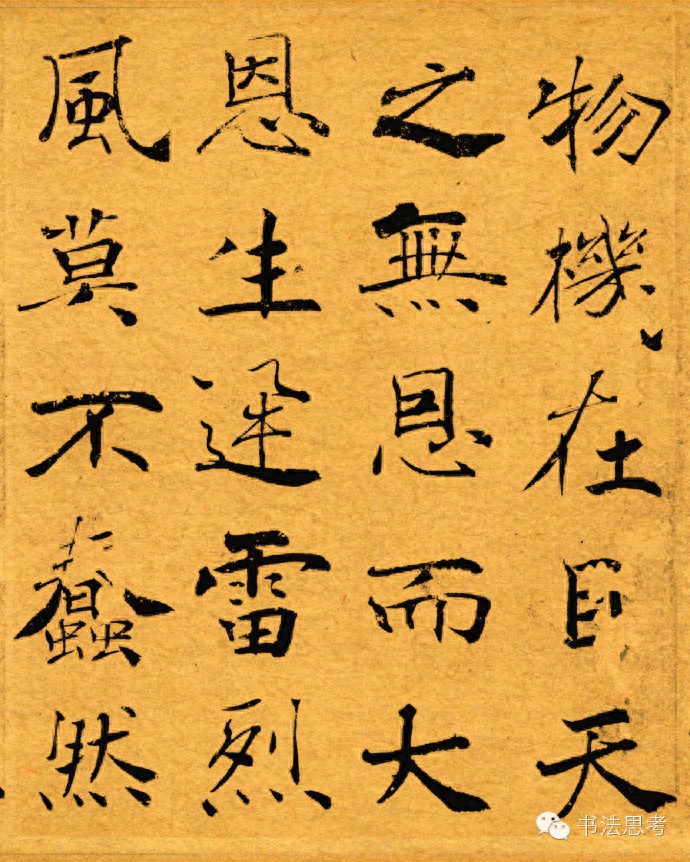 物機在目天
之無恩而大
恩生迅雷烈
風莫不蠢然
书法思考